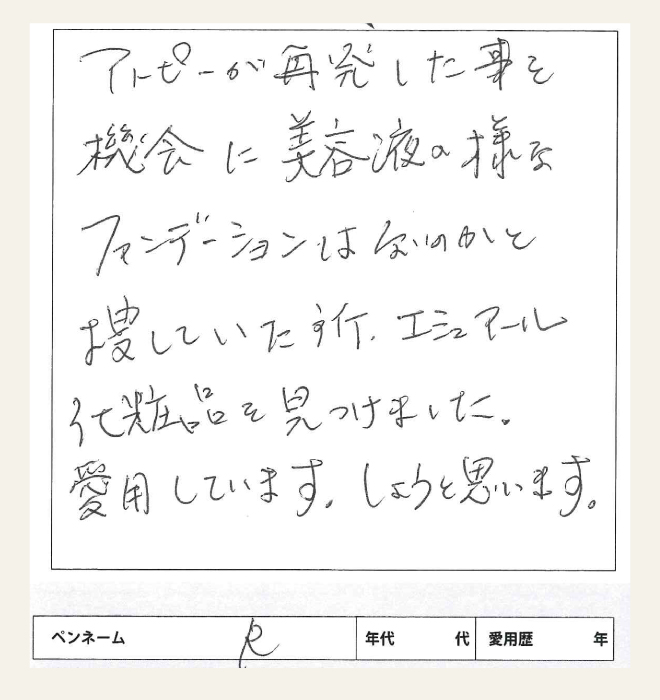 アトピーが再発した事を
機会に美容液の様な
ファンデーションはないのかと
捜していた所、エミュアール
化粧品を見つけました。
愛用しています。しようと思います。
ペンネーム R 年代 代 愛用歴 年